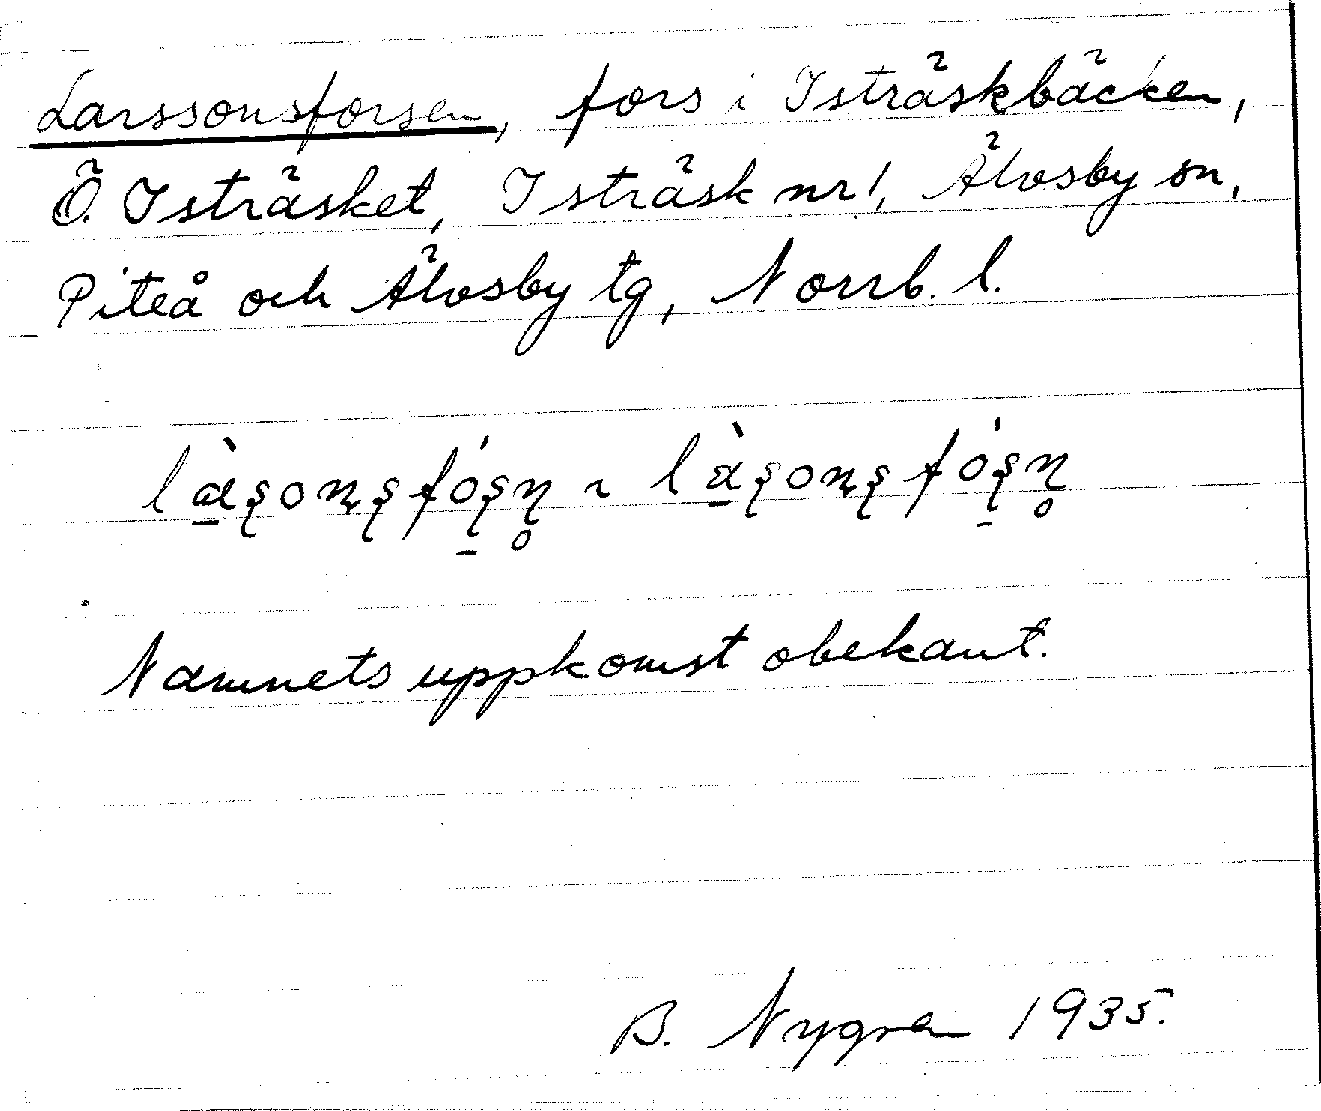 Larssonsforsen, fors i Isträskbäcken,
Ö. Isträsket, Isträsk nr 1, Älvsby sn,
Piteå och Älvsby tg, Norrb. l.
là̱şonşfó̱şn̥ ~ là̱şonşfó̱şn̥
Namnets uppkomst obekant.
B. Nygren 1935.